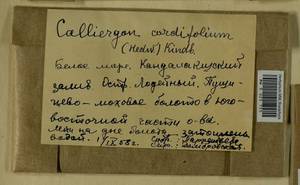 Calliergon cordifolium
(Hedw.) Kindb.
Белое море. Кандалакшский
залив. Остр. Лодейный. Пуши-
цево-моховое болото в юго-
восточной части о-ва.
Мхи на дне болота, затоплены
водой. 1/IX 58 г.